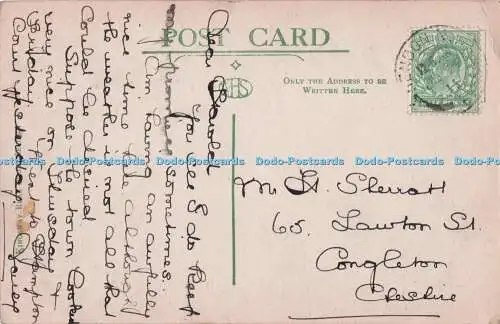 POST CARD
ONLY THE ADDRESS TO BE
WRITTEN HERE.
Dear Harold
You see I do keep
my promise sometimes.
Am having an awfully
nice time here although
the weather is not all that
could be desired.
Suppose the town looked
very nice on Tuesday &
Friday.
Cow yesterday.
Mr H. Sherratt
65, Lawton St.
Congleton
Cheshire
Dodo-Postcards Dodo-Postcards Dodo-Postcards Dodo-Postcards Dodo-Postcards Dodo-Postcards